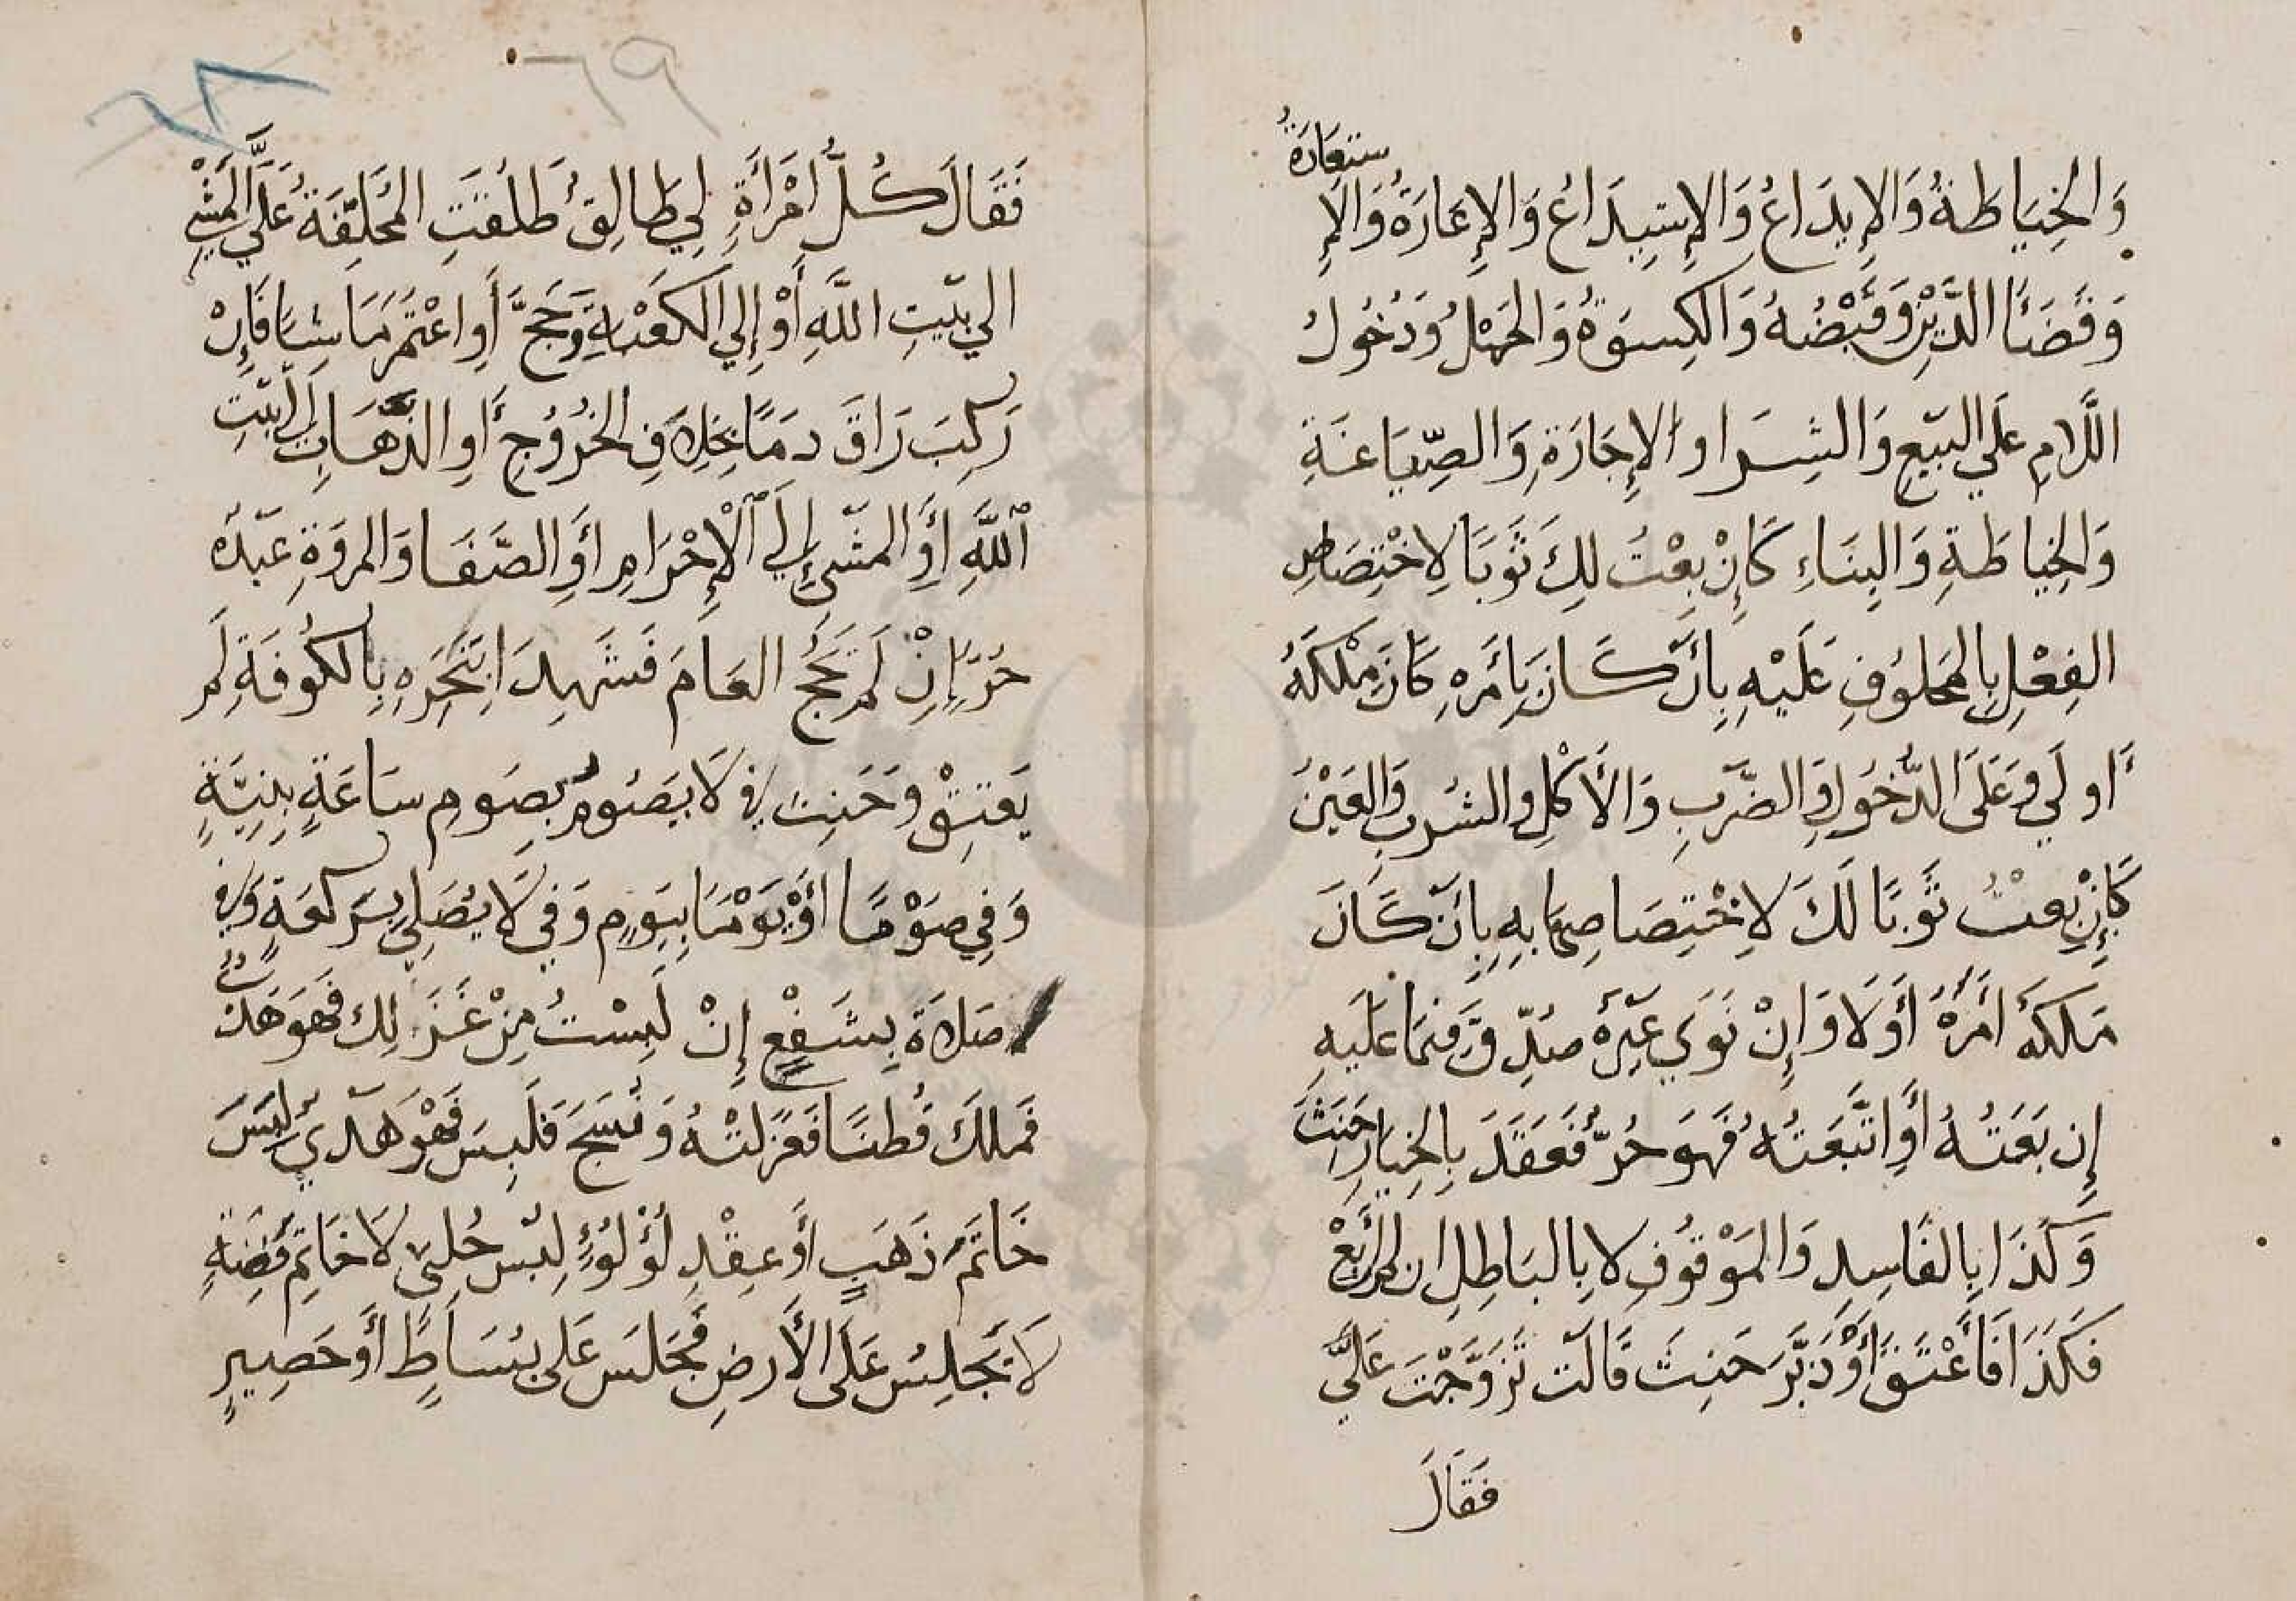 وَالخِيَاطَةُ وَالإِيدَاعُ وَالإِسْتِيدَاعُ وَالإِعَارَةُ وَالإِ
ستعَارَةُ
وَقَضَأُ الدَّيْنِ وَقَبْضُهُ وَالكِسوَةُ وَالحَمْلُ وَدُخُولُ
اللَّامِ عَلَي البَيْعِ وَالشِرَا وَالإِجَارَةِ وَالصِّيَاغَةِ
وَالخِيَاطَةِ وَالبِنَاءِ كَإِنْ بِعْتُ لَكَ ثَوبًا لِاخْتِصَاصِ
الفِعْلِ بِالمَحلُوفِ عَلَيْهِ بِأَنْ كَانَ بِأَمْرِهِ كَانَ مِلْكَهُ
أَو لَا وَعَلَى الدُّخُولِ وَالضَّربِ وَالأَكْلِ وَالشُربِ وَالعَيْنُ
كَإِنْ بِعْتُ ثَوبًا لَكَ لِاخْتِصَاصِهَا بِهِ بِأَنْ كَانَ
مَلَكَهُ أَمَرَهُ أَوَلَا وَإِنْ نَوَي غَيْرَهُ صُدِّقَ فِيمَا عَلَيهِ
إِن بِعْتُهُ أَوِ ابْتَعتُهُ فَهوَ حُرٌّ فَعَقَدَ بِالخِيَارِ حَنِثَ
وَكَذَا بِالفَاسِدِ وَالمَوْقُوفِ لا بِالبَاطِلِ ان لم أَبِعْ
فَكَذَا فَأَعْتَقَ أَوْ دَبَّرَ حَنِثَ قَالَت تَزَوَّجْتَ عَلَيَّ
فَقَالَ
٦٩
فَقَالَ كُلُّ امْرَأَةٍ لِي طَالِقٌ طَلُقَتِ المُحَلِّفَةُ عَلَيَّ المَشْيُ
الي بَيتِ اللَّهِ أَوْ إِلي الكَعْبَةِ حَجَّ أَوِ اعْتَمَرَ مَاشِيَا فَإِنْ
رَكِبَ رَاقَ دَمًا بِخِلَافِ الخُرُوجِ أَوِ الذَّهَابِ إِلَى بَيتِ
اللَّهِ أَوِ المَشْيِ إِلَي الإِحْرَامِ أَوِ الصَّفَا وَالمروَةِ عَبدُهُ
حُرٌّ إِنْ لَم يَحُجَّ العَامَ فَشَهِدَا بِنَحْرِهِ بِالكُوفَةِ لَم
يَعتِقْ وَحَنِثَ فِي لَا يَصُومُ بِصَومِ سَاعَةٍ بِنِيَّةٍ
وَفِي صَوْمًا أَوْ يَوْمًا بِيَومٍ وَفِي لَا يُصَلِي بِرَكعَةٍ وَفِي
صَلَاةً بِشَفْعٍ إِنْ لَبِسْتُ مِنْ غَزلِك فَهوَ هَديٌ
فَملَكَ قُطنًا فَغَزَلتْهُ وَنُسِجَ فَلَبِسَ فَهْوَ هَديٌ لُبْسُ
خَاتَمِ ذَهَبٍ أَو عِقْدِ لُؤْلُؤٍ لُبْسُ حُلِيٍّ لَا خَاتَمِ فِضَّةٍ
لَا يَجلِسُ عَلَى الأَرضِ فَجَلَسَ عَلى بُسَاطٍ أَو حَصِيرٍ